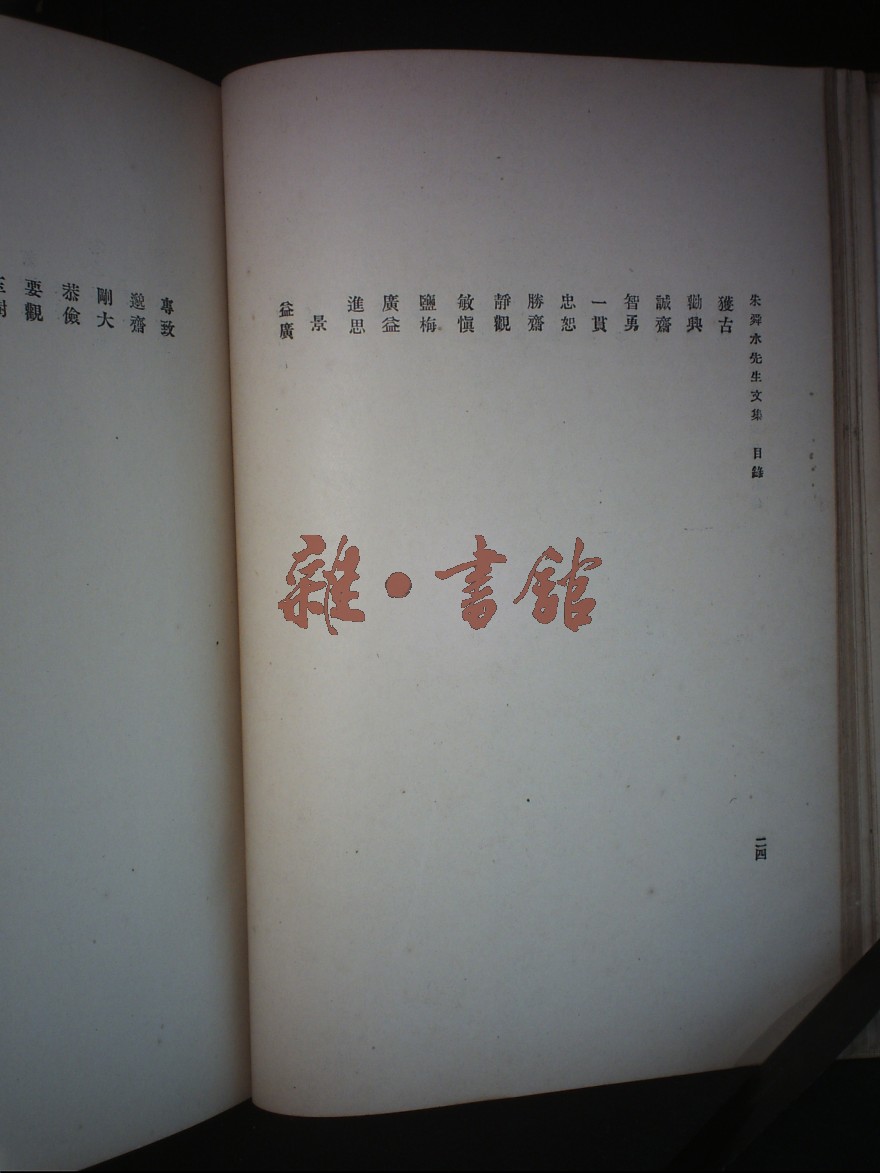 朱舜水先生文集　目錄
獲古
勸興
誠齋
智勇
一貫
忠恕
勝齋
靜觀
敏愼
鹽梅
廣益
進思
景
益廣
二四
專致
遯齋
剛大
恭儉
要觀
雜·書館